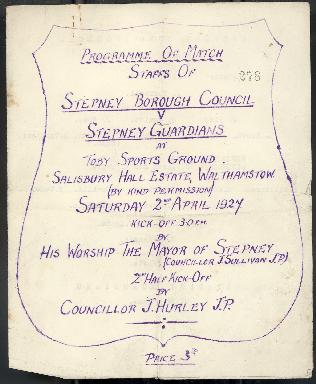 PROGRAMME OF MATCH
STAFFS OF
276
STEPNEY BOROUGH COUNCIL
V
STEPNEY GUARDIANS
AT
TOBY SPORTS GROUND.
SALISBURY HALL ESTATE, WALTHAMSTOW
(BY KIND PERMISSION)
SATURDAY 2ND APRIL 1927
KICK-OFF 3.0 P.M.
BY
HIS WORSHIP THE MAYOR OF STEPNEY
(COUNCILLOR J. SULLIVAN J.P.)
2ND HALF KICK-OFF
BY
COUNCILLOR J. HURLEY J.P.
PRICE 3D